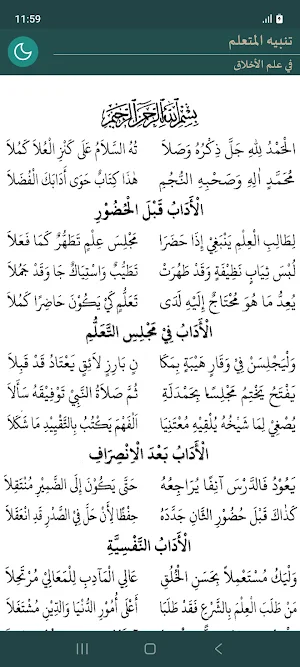 11:59
تنبيه المتعلم
في علم الأخلاق
بِسْمِ اللَّهِ الرَّحْمَنِ الرَّحِيمِ
الْحَمْدُ لِلهِ جَلَّ ذِكْرُهُ وَصَلَا تُهُ السَّلَامُ عَلَى كَنْزِ الْعُلَا كَمُلَا
مُحَمَّدٍ اٰلِهِ وَصَحْبِهِ النُّجُمِ هٰذَا كِتَابٌ حَوَى آدَابَكَ الْفُضَلَا
الْأَدَابُ قَبْلَ الْحُضُوْرِ
لِطَالِبِ الْعِلْمِ يَنْبَغِيْ إِذَا حَضَرَا مَجْلِسَ عِلْمٍ تَطَهُّرٌ كَمَا فَعَلَا
لُبْسَ ثِيَابٍ نَظِيْفَةٍ وَقَدْ طَهُرَتْ تَطَيُّبٌ وَاسْتِيَاكٌ جَا وَقَدْ جَمُلَا
يُعِدُّ مَا هُوَ مُحْتَاجٌ إِلَيْهِ لَدَى تَعَلُّمٍ كَيْ يَكُوْنَ حَاضِرًا كَمُلَا
الْأَدَابُ فِيْ مَجْلِسِ التَّعَلُّمِ
وَلْيَجْلِسَنْ فِيْ وَقَارٍ هَيْبَةٍ بِمَكَا نٍ بَارِزٍ لَائِقٍ يَعْتَادُ قَدْ قَبِلَا
يَفْتَحُ يَخْتِمُ مَجْلِسًا بِحَمْدَلَةِ ثُمَّ صَلَاةُ النَّبِيْ تَوْفِيْقَهُ سَأَلَا
يُصْغِيْ لِمَا شَيْخُهُ يُلْقِيْهِ مُعْتَنِيَا اَلْفَهْمَ يَكْتُبُ بِالتَّقْيِيْدِ مَا شَكَلَا
الْأَدَابُ بَعْدَ الْاِنْصِرَافِ
يَعُوْدُ فَالدَّرْسَ آنِفًا يُرَاجِعُهُ حَتَّى يَكُوْنَ إِلَى الضَّمِيْرِ مُنْتَقِلَا
كَذَاكَ قَبْلَ حُضُوْرِ الثَّانِ جَدَّدَهُ حِفْظًا لِأَنْ حَلَّ فِي الصَّدْرِ قَدِ انْعَقَلَا
الْأَدَابُ النَّفْسِيَّةِ
وَلْيَكُ مُسْتَعْمِلًا بِحَسَنِ الْخُلُقِ عَالِي الْمَآدِبِ لِلْمَعَالِيْ مُرْتَحِلَا
مَنْ طَلَبَ الْعِلْمَ بِالشَّرْعِ فَقَدْ طَلَبَا أَعْلَى أُمُوْرِ الدُّنْيَا وَالدِّيْنِ مُشْتَغَلَا